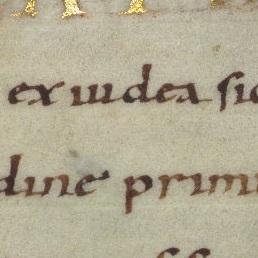 ex iudea sic
dine primi